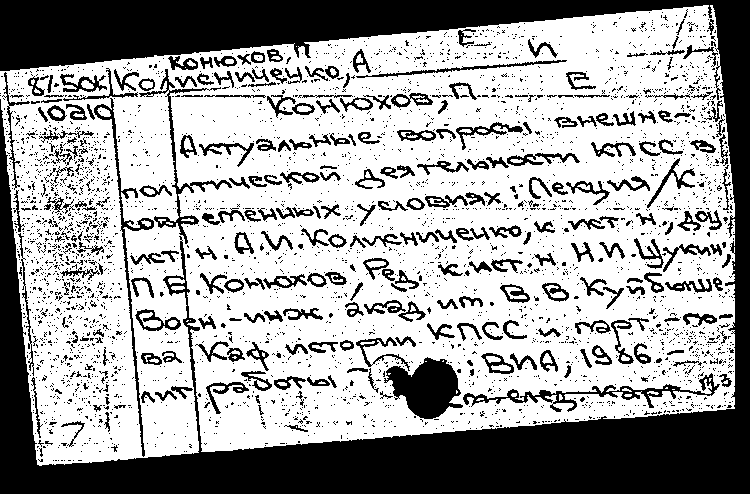 Конюхов, П Е
87-50к Колисниченко, А И
10210 Конюхов, П Е
Актуальные вопросы внешне-
политической деятельности КПСС в
современных условиях: Лекция / К.
ист. н. А.И. Колисниченко, к. ист. н., доц.
П.Е. Конюхов; Ред. к. ист. н. Н.И. Щукин;
Воен.-инж. акад. им. В.В. Куйбыше-
ва Каф. истории КПСС и парт.-по-
лит работы. - : ВИА, 1986. -
см. след. карт.